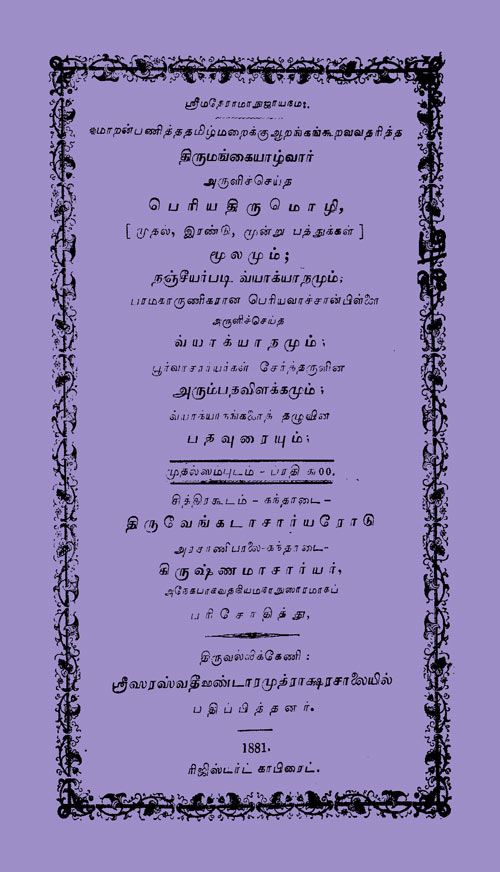 ஸ்ரீமதேராமாநுஜாயநம:.
மாறன்பணித்ததமிழ்மறைக்குஆறங்கங்கூறவவதரித்த
திருமங்கையாழ்வார்
அருளிச்செய்த
பெரியதிருமொழி,
[ முதல், இரண்டு, மூன்று பத்துக்கள் ]
மூலமும்;
நஞ்சீயர்படி வ்யாக்யாநமும்;
பரமகாருணிகரான பெரியவாச்சான்பிள்ளை
அருளிச்செய்த
வ்யாக்யாநமும்;
பூர்வாசார்யர்கள் சேர்ந்தருளின
அரும்பதவிளக்கமும்;
வ்யாக்யாநங்களைத் தழுவின
பதவுரையும்;
முதல்ஸம்புடம் - ப்ரதி ௬00.
சித்திரகூடம் - கந்தாடை -
திருவேங்கடாசார்யரோடு
அரசாணிபாலை-கந்தாடை-
கிருஷ்ணமாசார்யர்,
பரிசோதித்து,
திருவல்லிக்கேணி :
ஸ்ரீஸரஸ்வதீபண்டாரமுத்ராக்ஷரசாலையில்
பதிப்பித்தனர்.
1881.
ரிஜிஸ்டர்ட் காபிரைட்.